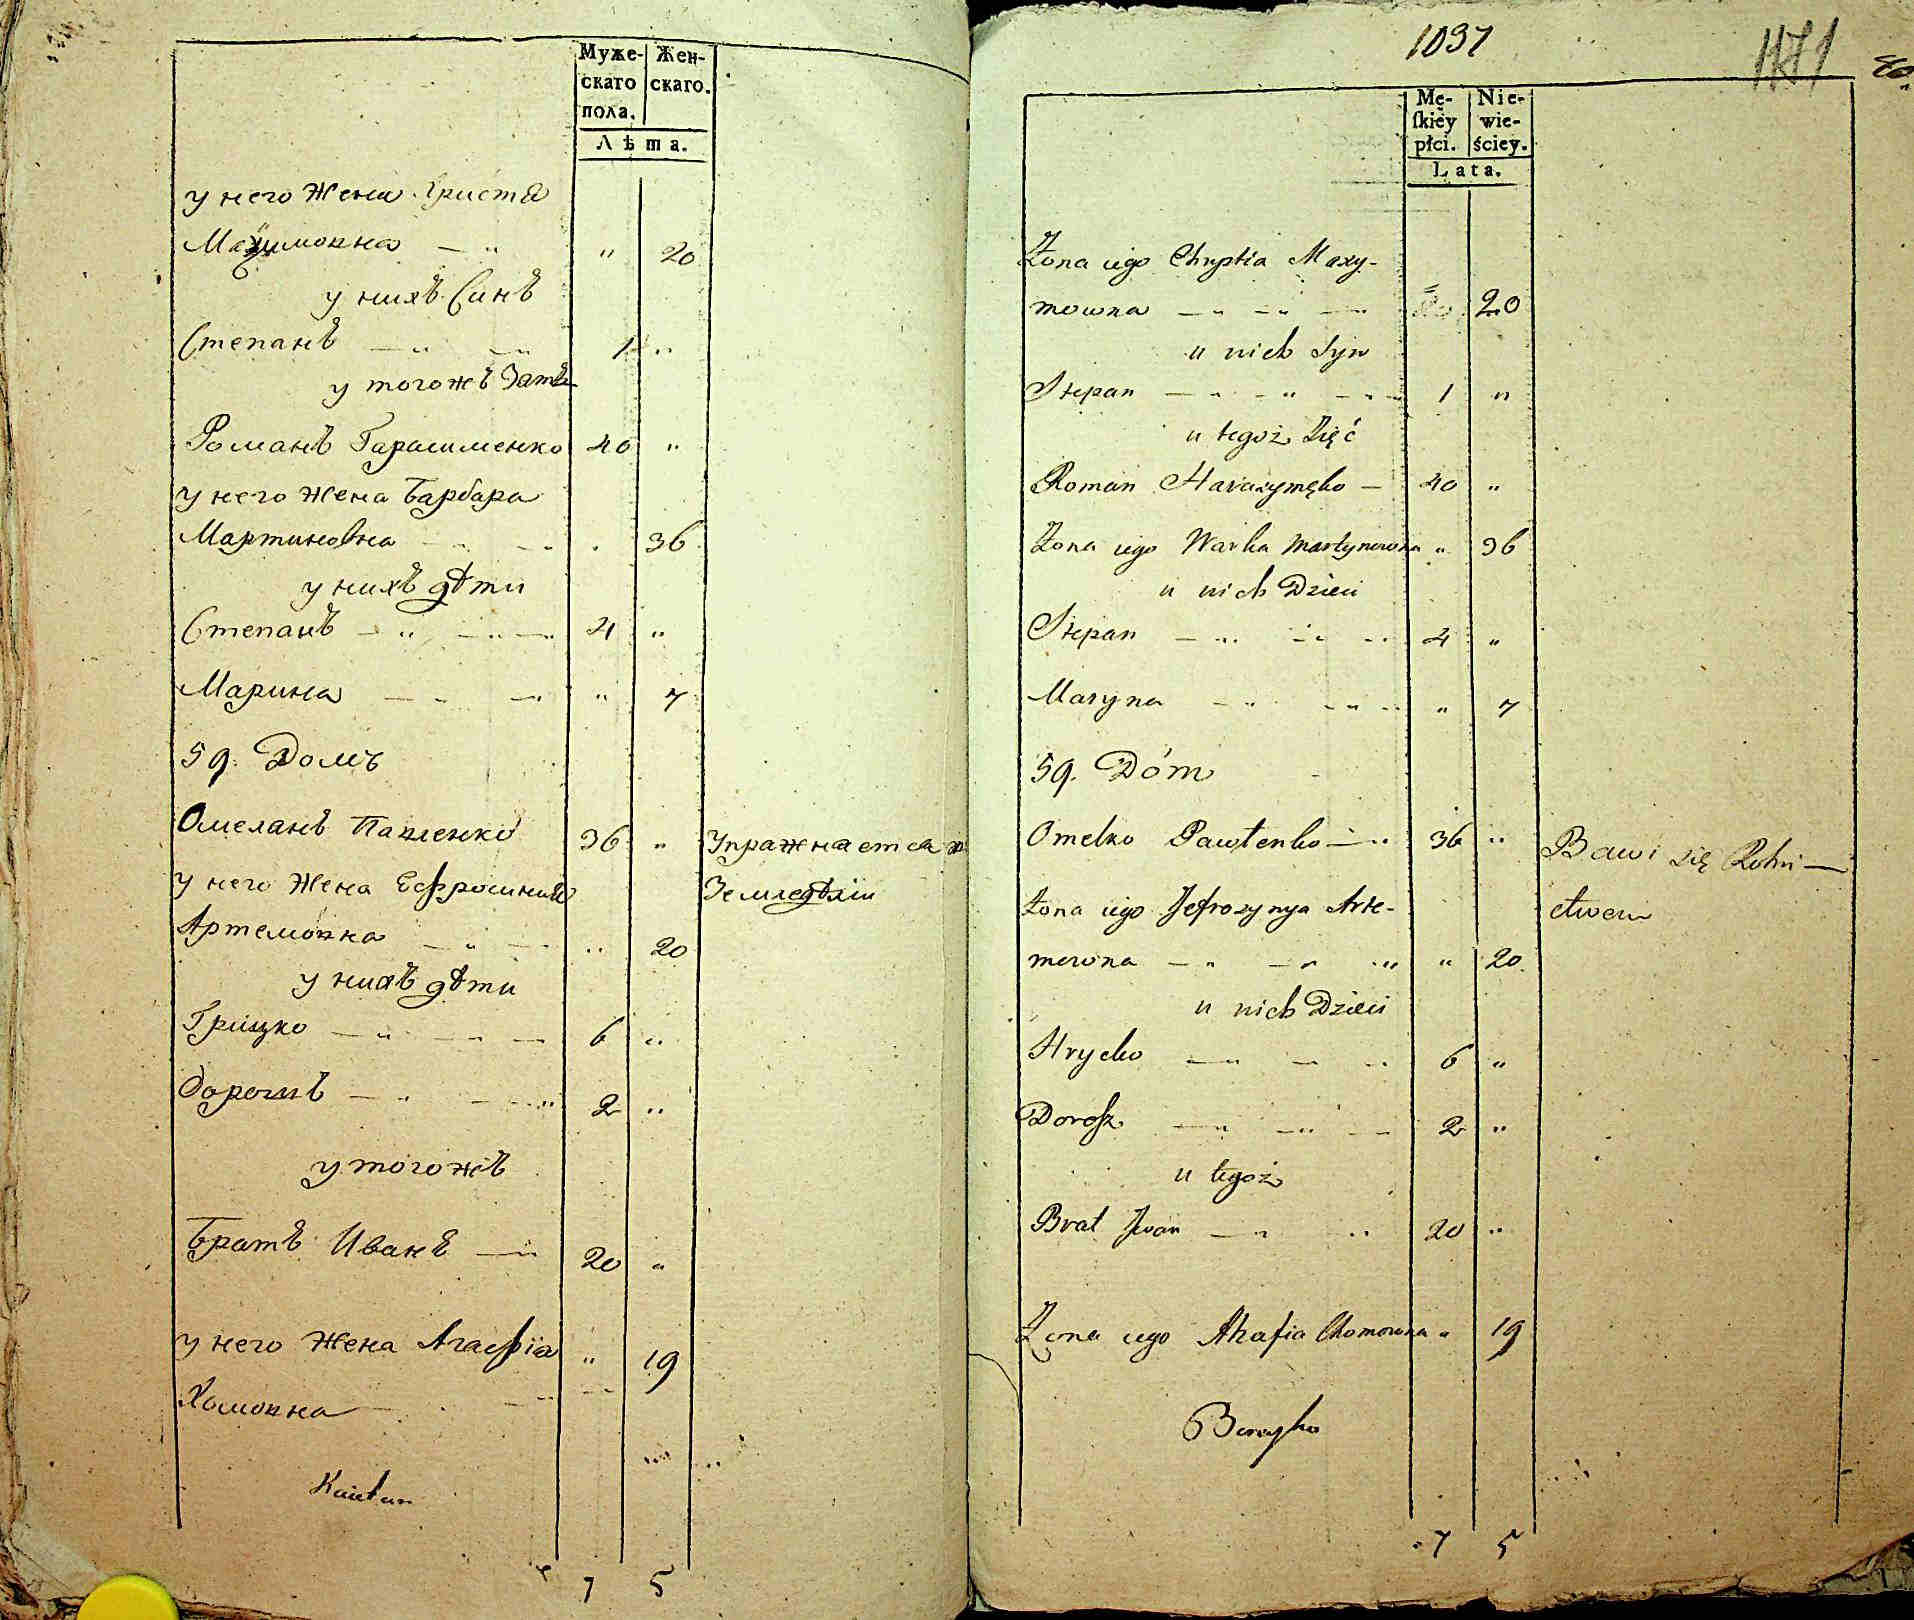 Муже- Жен-
скаго скаго.
пола.
Лѣта.
у него Жена Христя
Махимовна — " " 20
у нихъ Синъ
Степанъ — " — " 1 "
у тогожъ Зять
Романъ Гарасименко 40 "
у него Жена Барбара
Мартиновна — " — " " 36
у нихъ дѣти
Степанъ — " — " — 4 "
Марина — " — " " 7
59. Домъ
Омелянъ Павленко 36 " Упражняется в
у него Жена Ефросиния Земледѣліи
Артемовна — " — " " 20
у нихъ дѣти
Грицко — " — " — 6 "
Дорошъ — " — " 2 "
у тогожъ
Братъ Иванъ — " 20 "
у него Жена Агафія " 19
Хомовна — " — "
Kaietan
7 5
1037
1171
Mę- Nie-
ſkiey wie-
płci. ściey.
Lata.
Żona iego Chrystia Maxy-
mowna — " — " — " " 20
u nich Syn
Stepan — " — " — " 1 "
u tegoż Zięć
Roman Harasymęko — 40 "
Żona iego Warka Martynowna " 36
u nich Dzieci
Stepan — " — " — " 4 "
Maryna — " — " — " " 7
59. Dóm
Omelko Pawłenko — " 36 " Bawi się Rolni-
Żona iego Jefrozynya Arte- ctwem
mowna — " — " — " " 20
u nich Dzieci
Hrycko — " — " 6 "
Dorosz — " — " — 2 "
u tegoż
Brat Jwan — " " 20 "
Żona iego Ahafia Chomowna " 19
7 5